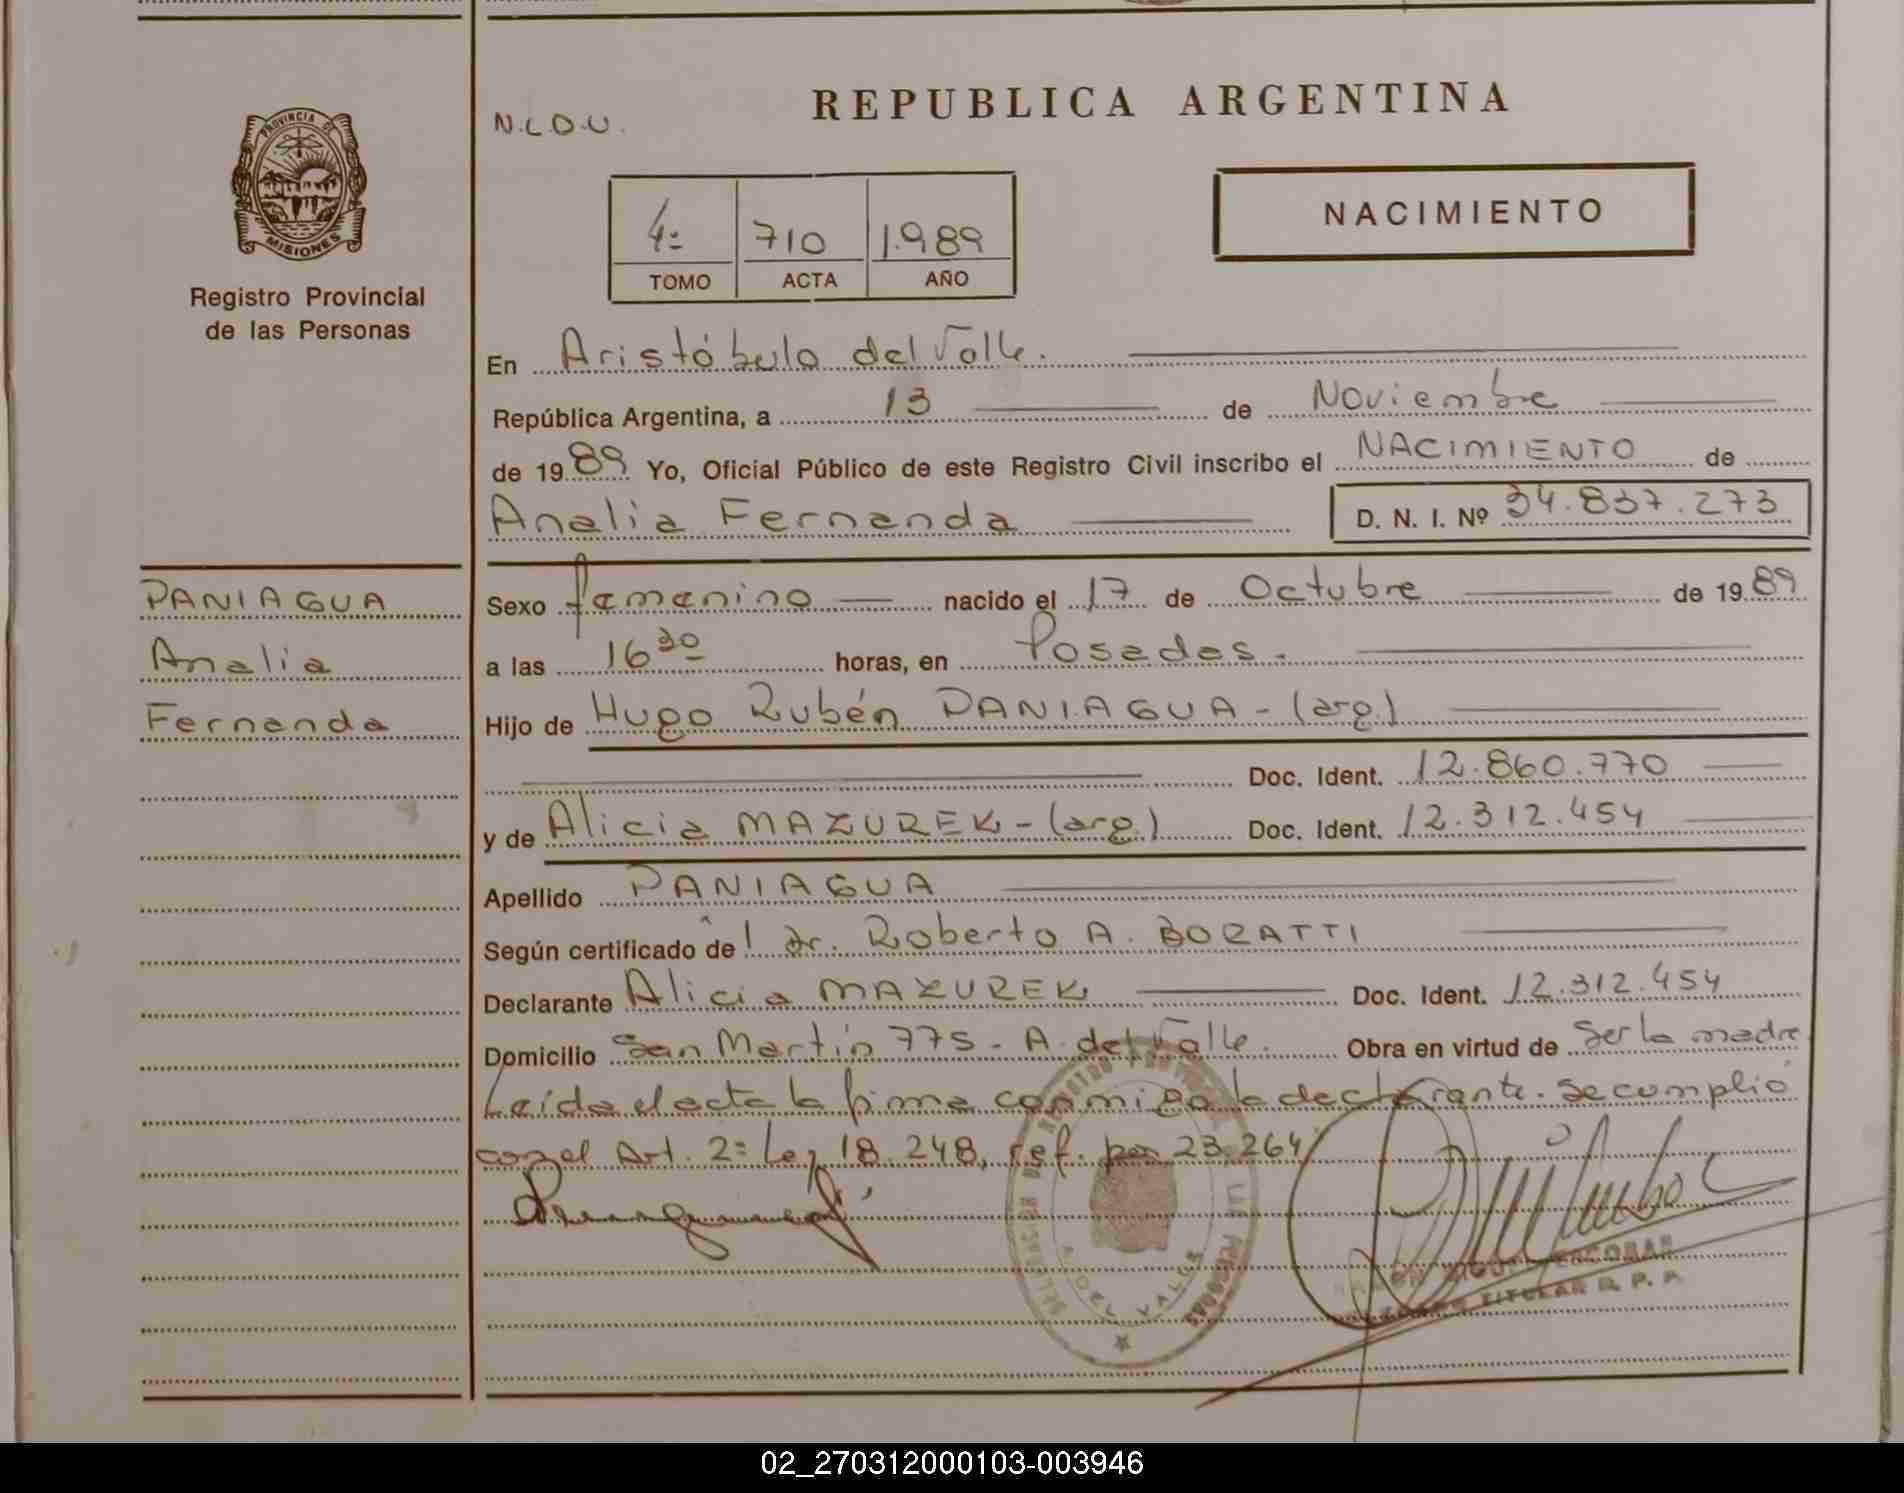 REPUBLICA ARGENTINA
N.L.D.U.
PROVINCIA DE
MISIONES
Registro Provincial
de las Personas
4º 710 1.989
TOMO ACTA AÑO
NACIMIENTO
En Aristóbulo del Valle.
República Argentina, a 13 de Noviembre
de 1989 Yo, Oficial Público de este Registro Civil inscribo el NACIMIENTO de
Analia Fernanda D. N. I. Nº 34.837.273
PANIAGUA
Analia
Fernanda
Sexo femenino nacido el 17 de Octubre de 1989
a las 16 30 horas, en Posadas.
Hijo de Hugo Rubén PANIAGUA - (arg.)
Doc. Ident. 12.860.770
y de Alicia MAZUREK - (arg.) Doc. Ident. 12.312.454
Apellido PANIAGUA
Según certificado del Dr. Roberto A. BORATTI
Declarante Alicia MAZUREK Doc. Ident. 12.312.454
Domicilio San Martín 775 - A. del Valle. Obra en virtud de Ser la madre
Leída el acta la firma conmigo la declarante. Se cumplió
con el Art. 2º Ley 18.248, ref. por 23.264
A. DEL VALLE
LAS PERSONAS
ESCOBAR
TITULAR R. P. P.
02_270312000103-003946